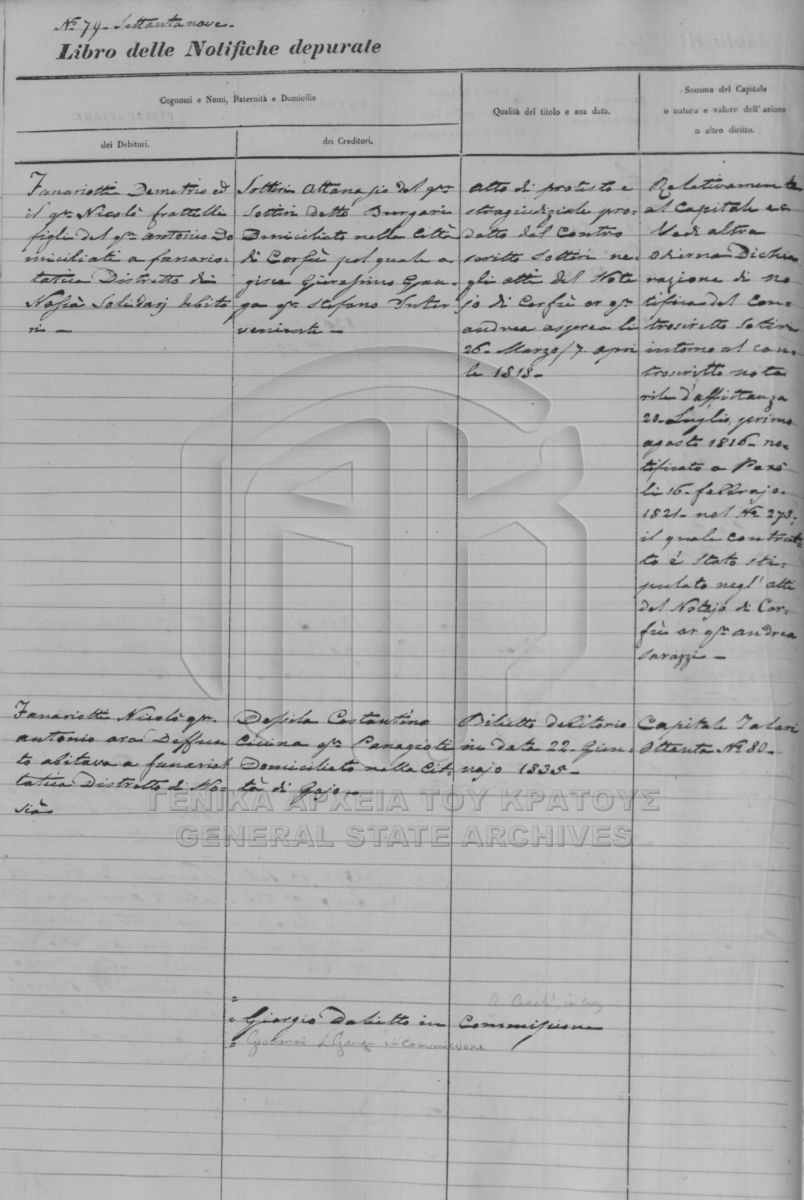 No 79. Settantanove.
Libro delle Notifiche depurate
Cognomi e Nomi, Paternità e Domicilio
dei Debitori.
dei Creditori.
Qualità del titolo e sua data.
Somma del Capitale
o natura e valore dell'azione
o altro diritto.
Fanariotti Demetrio ed
il qm Nicolò frattelli
figli del qm Antonio Do
miciliati a fanario-
tatica Distretto di
Solidarj debito
ri —
Sotteri Attanasio del qm
Sotteri detto Burgari
Domiciliato nella Città
di Corfù pel quale a-
gisce Gierasimo
qm Stefano Inter-
veniente —
Atto di protesto e
stragiudiziale pro-
dotto dal Contro
scritto Sotteri ne-
gli atti del Nota
jo di Corfù or qm
Andrea li
26 Marzo/7 apri
le 1818 —
Relativamente
al Capitale
Vedi altra
odierna Dichia
razione di no
tifica del con
troscritto Sotteri
intorno al con
troscritto nota
rile d'affittanza
20 Luglio, primo
agosto 1816 no-
tificato a Paxò
li 16 febbrajo
1821 nel No 273;
il quale contrat
to è stato sti-
pulato negl'atti
del Notajo di Cor-
fù or qm Andrea
Sarazzi —
Fanariotti Nicolò qm
Antonio ora Deffun
to abitava a fanariot
tatica Distretto di
Costantino
qm Panagioti
Domiciliato nella Cit-
tà di Gajo —
Bilietto debitorio
in data 22 Gien-
najo 1835 —
Capitale Talari
Ottanta No 80 —
ΓΕΝΙΚΑ ΑΡΧΕΙΑ ΤΟΥ ΚΡΑΤΟΥΣ
GENERAL STATE ARCHIVES
Giorgio in Commissione
Giovanni in Commissione